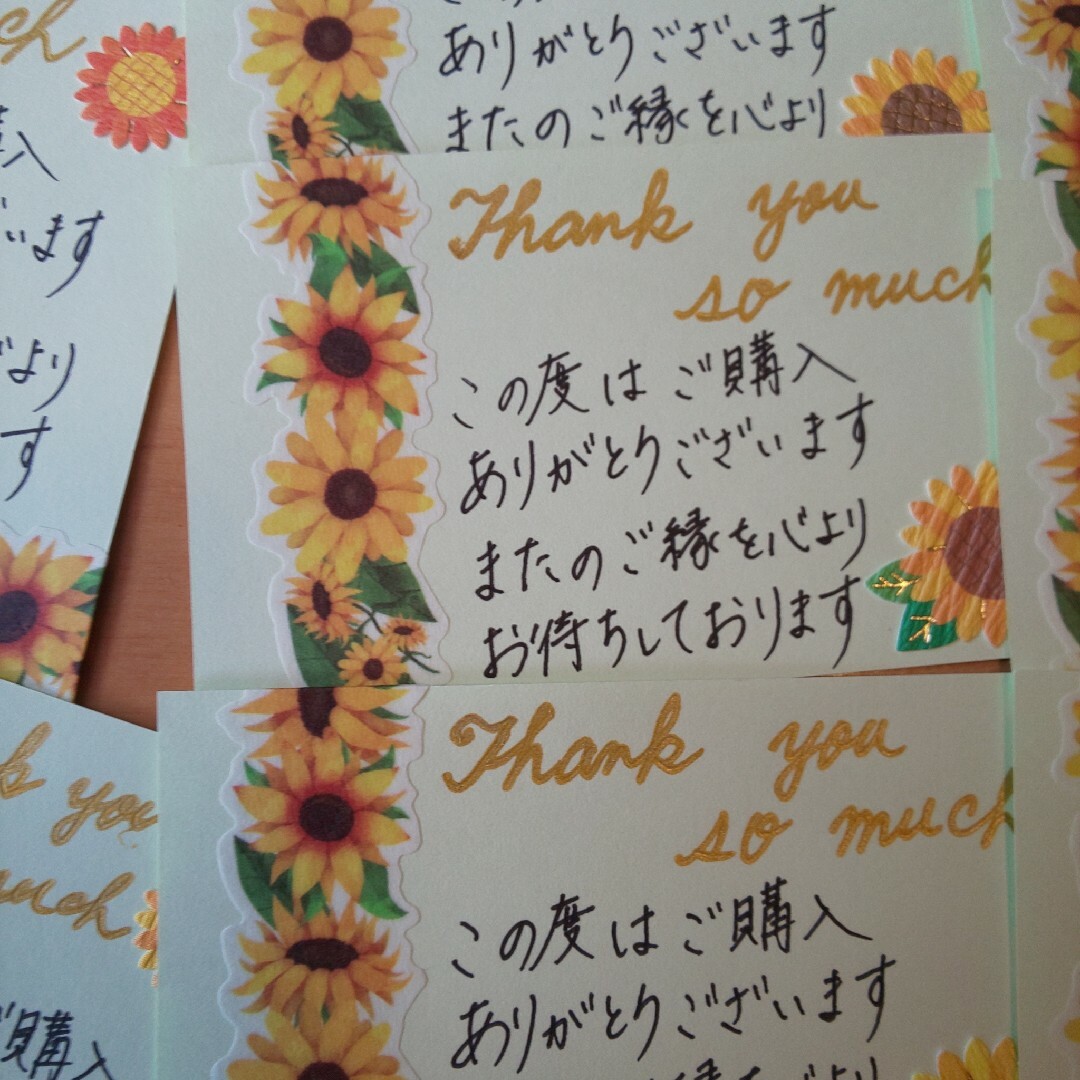 ch
購入
います
より
す
ありがとうございます
またのご縁を心より
Thank you
so much
この度はご購入
ありがとうございます
またのご縁を心より
お待ちしております
k you
much
ご購入
Thank you
so much
この度はご購入
ありがとうございます
縁を心より